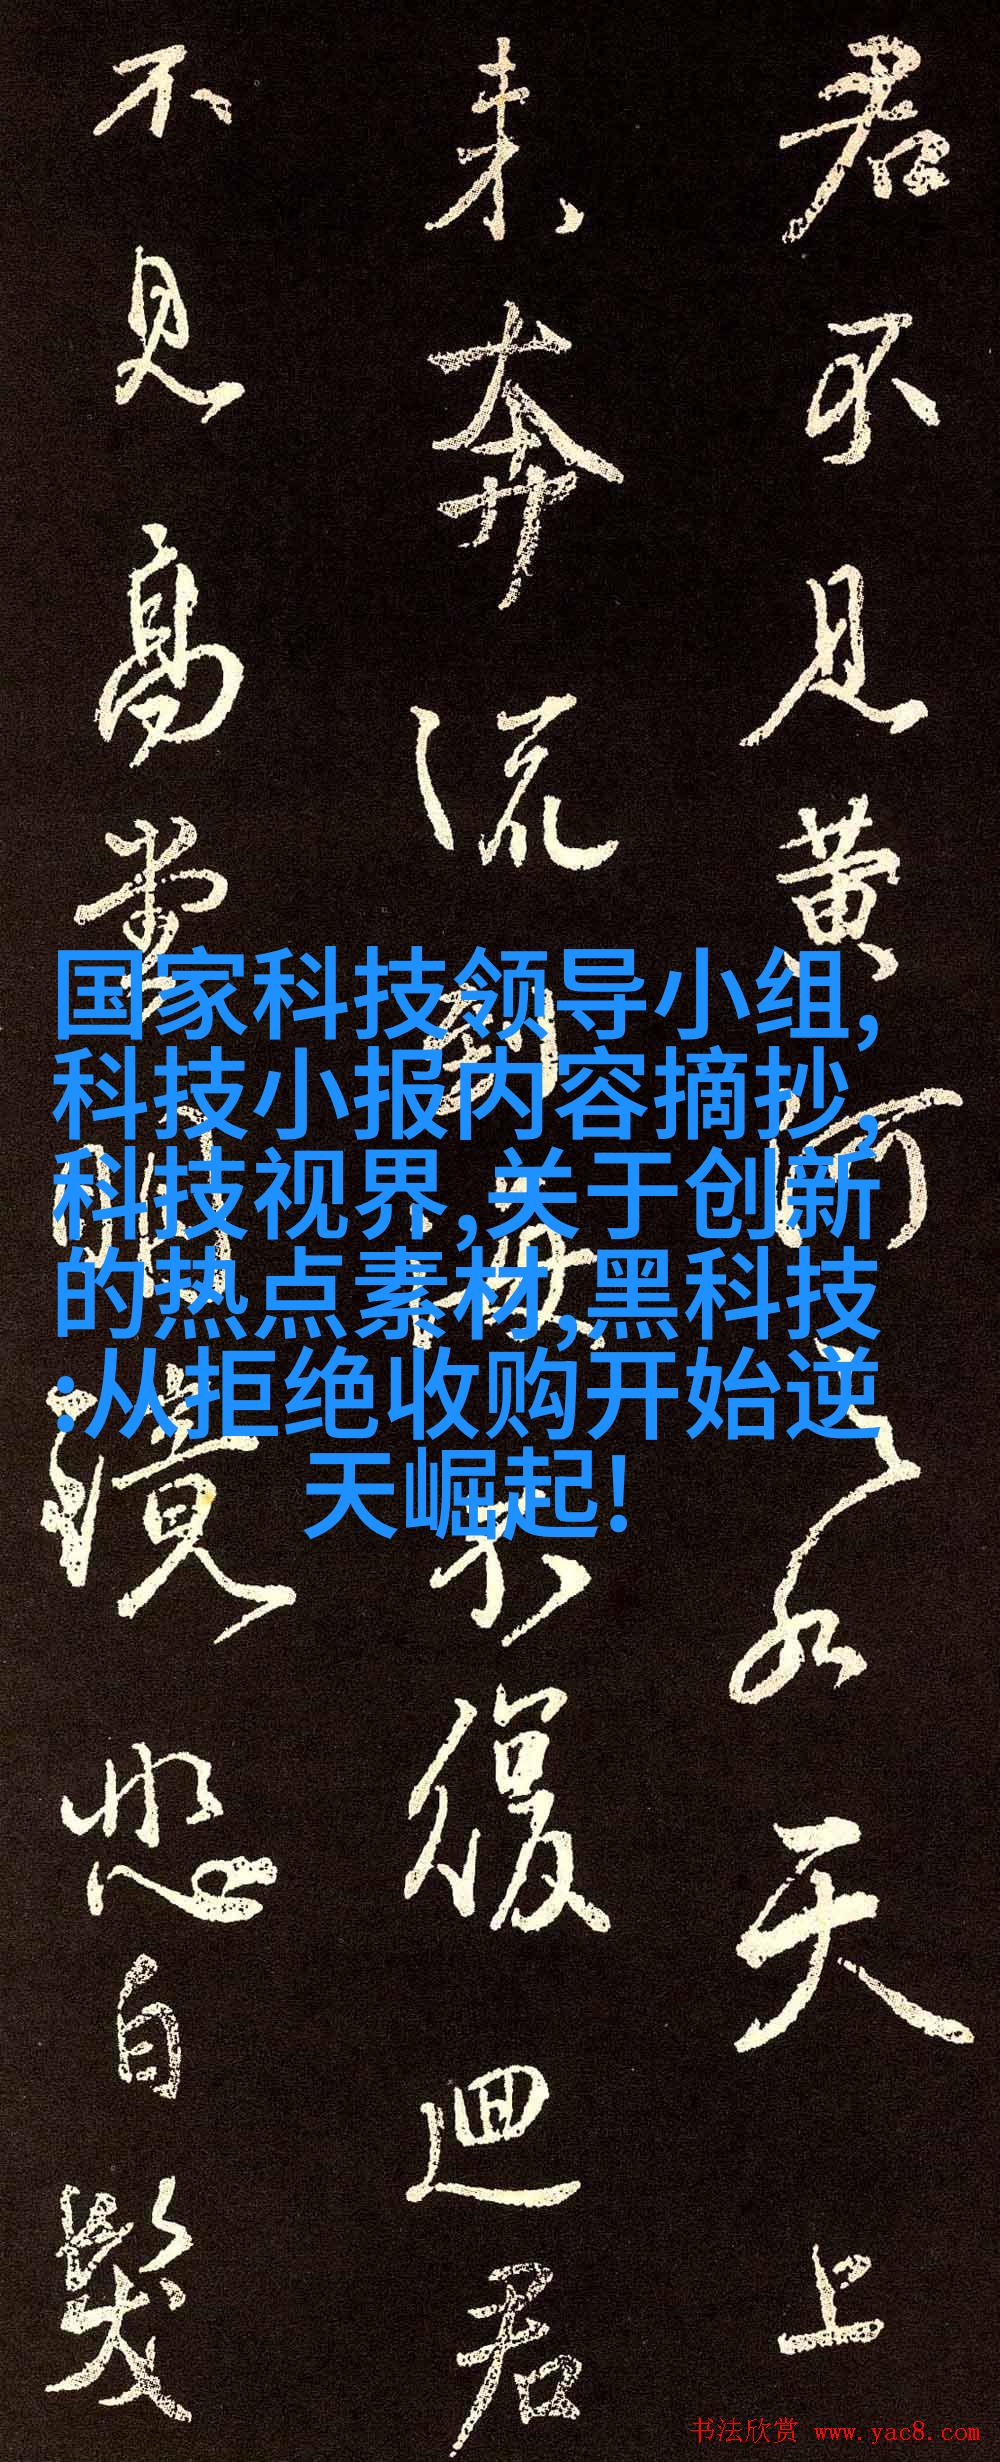 君不见黄河之水天上
来奔流到海不复迴君
不见高堂明镜悲白发
国家科技领导小组,
科技小报内容摘抄,
科技视界,关于创新
的热点素材,黑科技
:从拒绝收购开始逆
天崛起!
书法欣赏 www.yac8.com